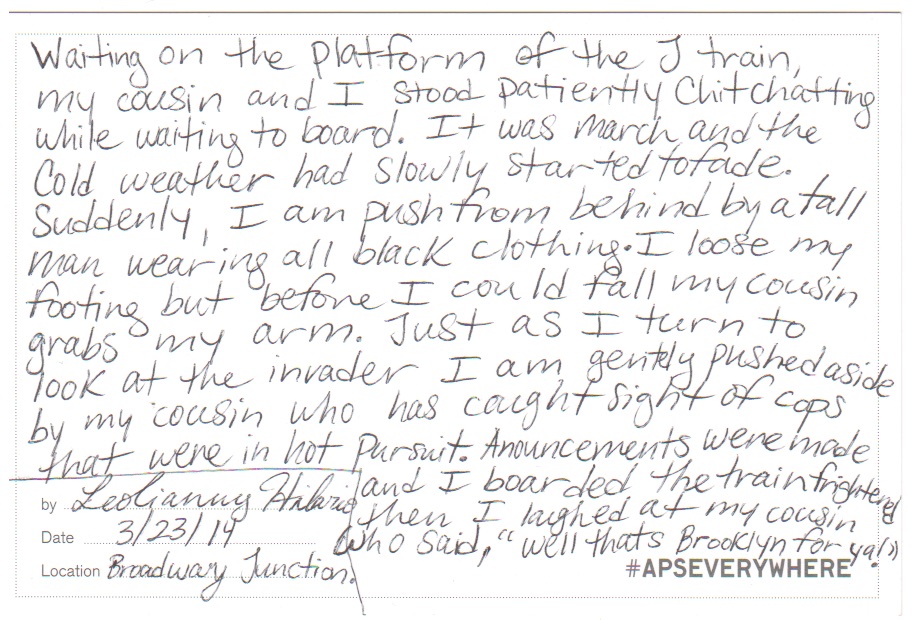 Waiting on the platform of the J train,
my cousin and I stood patiently Chitchatting
while waiting to board. It was march and the
Cold weather had slowly started to fade.
Suddenly, I am push from behind by a tall
man wearing all black clothing. I loose my
footing but before I could fall my cousin
grabs my arm. Just as I turn to
look at the invader I am gently pushed aside
by my cousin who has caught sight of cops
that were in hot pursuit. Anouncements were made
and I boarded the train frightened
then I laughed at my cousin
who said, "well thats Brooklyn for ya!"
by Leolianny Hilario
Date 3/23/14
Location Broadway Junction.
#APSEVERYWHERE